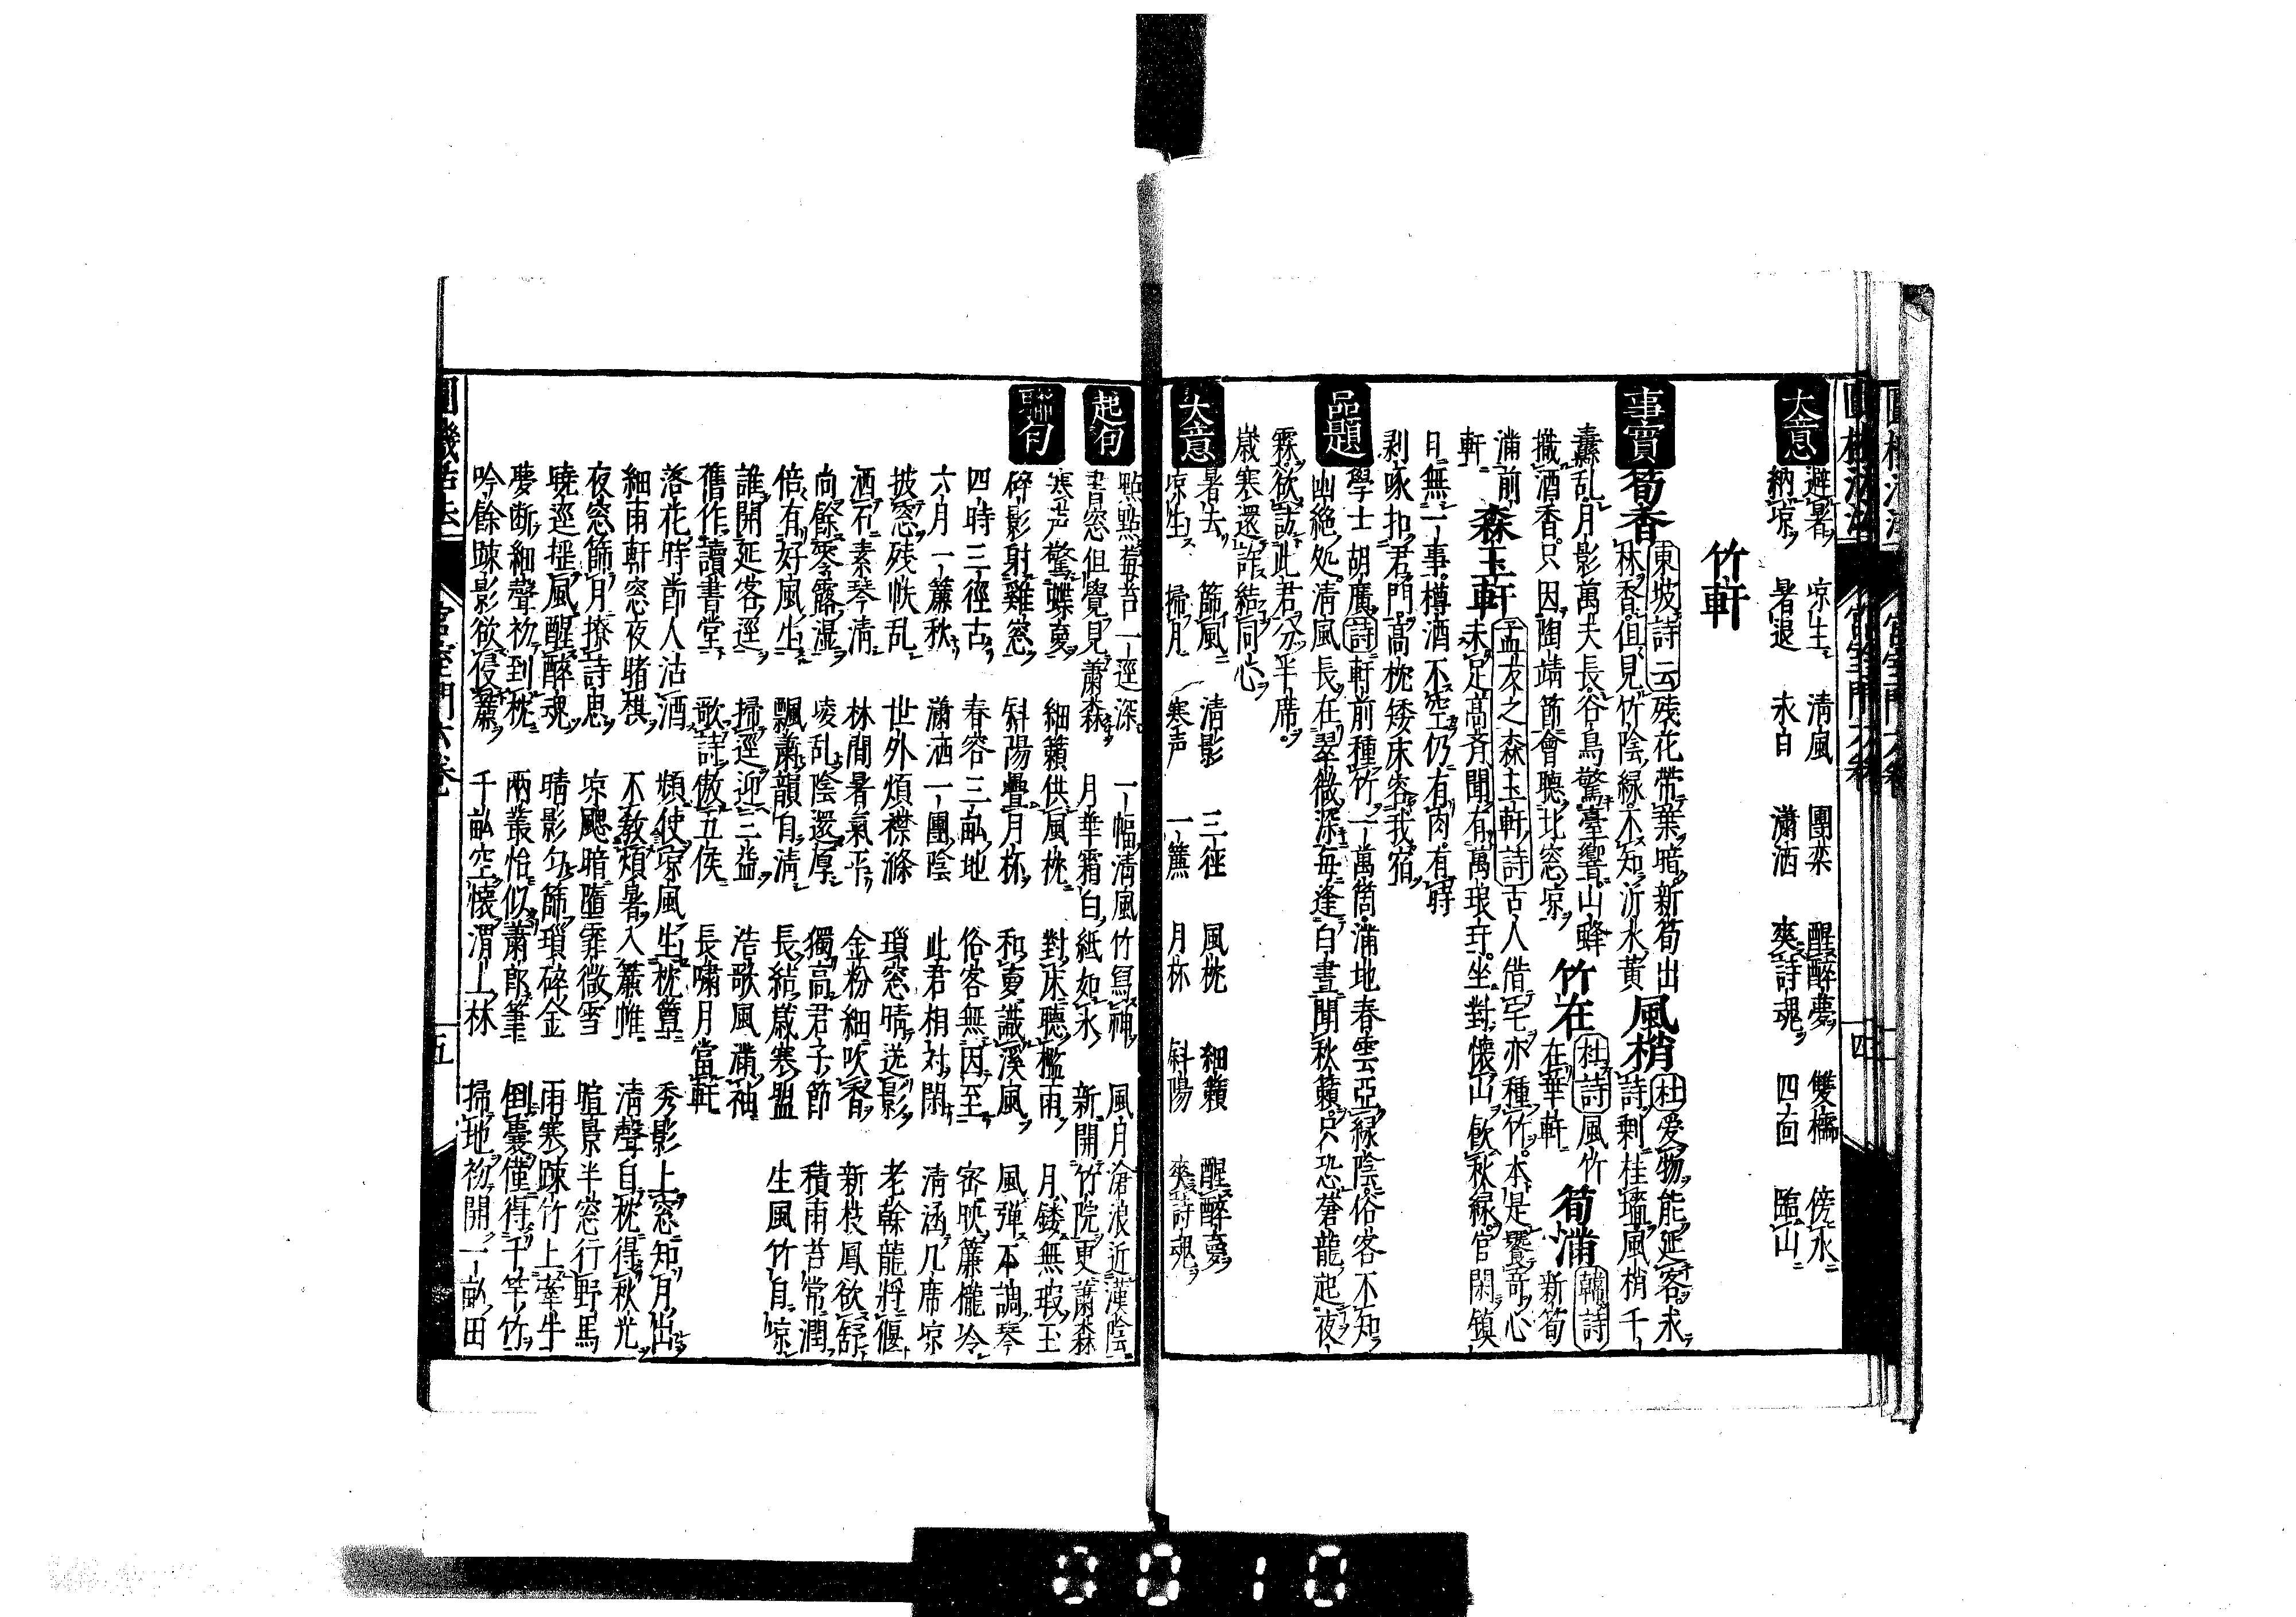 大意
避暑 涼生 清風 團栾 醒醉夢 雙檐 傍水
納涼 暑退 永白 瀟洒 爽詩魂 四面 臨山
竹軒
事實
筍香 東坡詩云残花带葉暗新筍出
林香但見竹陰緑不知沂水黄
風梢 杜詩 爱物能延客求
剩桂瑶風梢千
纛乱月影萬夫長谷鳥驚臺響山蜂
撒酒香只因陶靖節會聽北窓凉
竹在 杜詩 風竹
在華軒
筍滿 韓詩
新筍
滿前
森玉軒 孟友之森玉軒詩 古人借宅亦種竹本是饕奇心
未足高斉聞有萬琅玕坐對懐山飲秋緑官閑鎮
軒
日無一事樽酒不空仍有肉有時
剥啄扣君門高枕矮床容我宿
品題
學士胡廣詩 軒前種竹一萬箇滿地春雲亞緑陰俗客不知
幽絶処清風長在翠微深毎逢白晝聞秋籟只恐蒼龍起夜
霖欲訪此君分半席
歳寒還許結同心
大意
暑去 篩風 清影 三徑 風枕 細籟 醒醉夢
凉生 掃月 寒声 一簾 月杯 斜陽 爽詩魂
起句
點點莓苔一逕深 一幅清風竹寫神 風月滄浪近漢陰
書窓但覺見蕭森 月華霜白紙如氷 新開竹院更蕭森
聯句
寒声驚蝶夏 細籟供風枕 對床聴檻雨 月鏤無瑕玉
碎影射雞窓 斜陽疊月杯 和夏識溪風 風弾不調琴
四時三徑古 春容三畝地 俗客無因至 密映簾櫳冷
六月一簾秋 瀟洒一團陰 此君相対閑 清涵几席凉
披窓残帙乱 世外煩襟滌 瑣窓晴送影 老幹龍將偃
洒石素琴清 林間暑氣平 金粉細吹香 新枝鳳欲舒
尚餘零露湿 崚乱陰還厚 獨高君子節 積雨苔常潤
倍有好風生 飄蕭韻自清 長結歳寒盟 生風竹自凉
誰開延客逕 掃逕迎三益 浩歌風滿袖
舊作讀書堂 歌詩傲五侯 長嘯月當軒
落花時節人沽酒 頻使凉風生枕簟 秀影上窓知月出
細雨軒窓夜賭棋 不教煩暑入簾帷 清聲自枕得秋光
夜窓篩月撩詩思 凉颸暗墮霏微雪 暄景半窓行野馬
曉逕揺風醒醉魂 晴影匀篩瑣碎金 雨寒踈竹上牽牛
夢断細聲初到枕 兩叢恰似蕭郎筆 倒嚢僅得千竿竹
吟餘踈影欲侵簾 千畝空懐渭上林 掃地初開一畝田